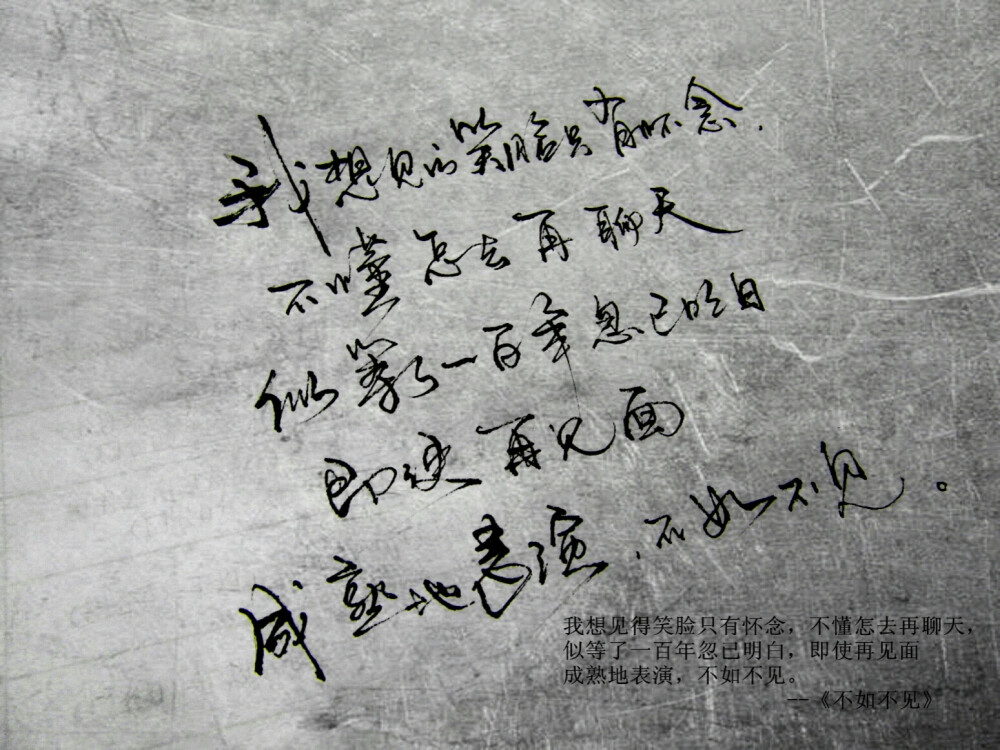 我想见的笑脸只有怀念，
不懂怎去再聊天
似等了一百年忽已明白
即使再见面
成熟地表演，不如不见。
我想见得笑脸只有怀念，不懂怎去再聊天，
似等了一百年忽已明白，即使再见面
成熟地表演，不如不见。
—《不如不见》